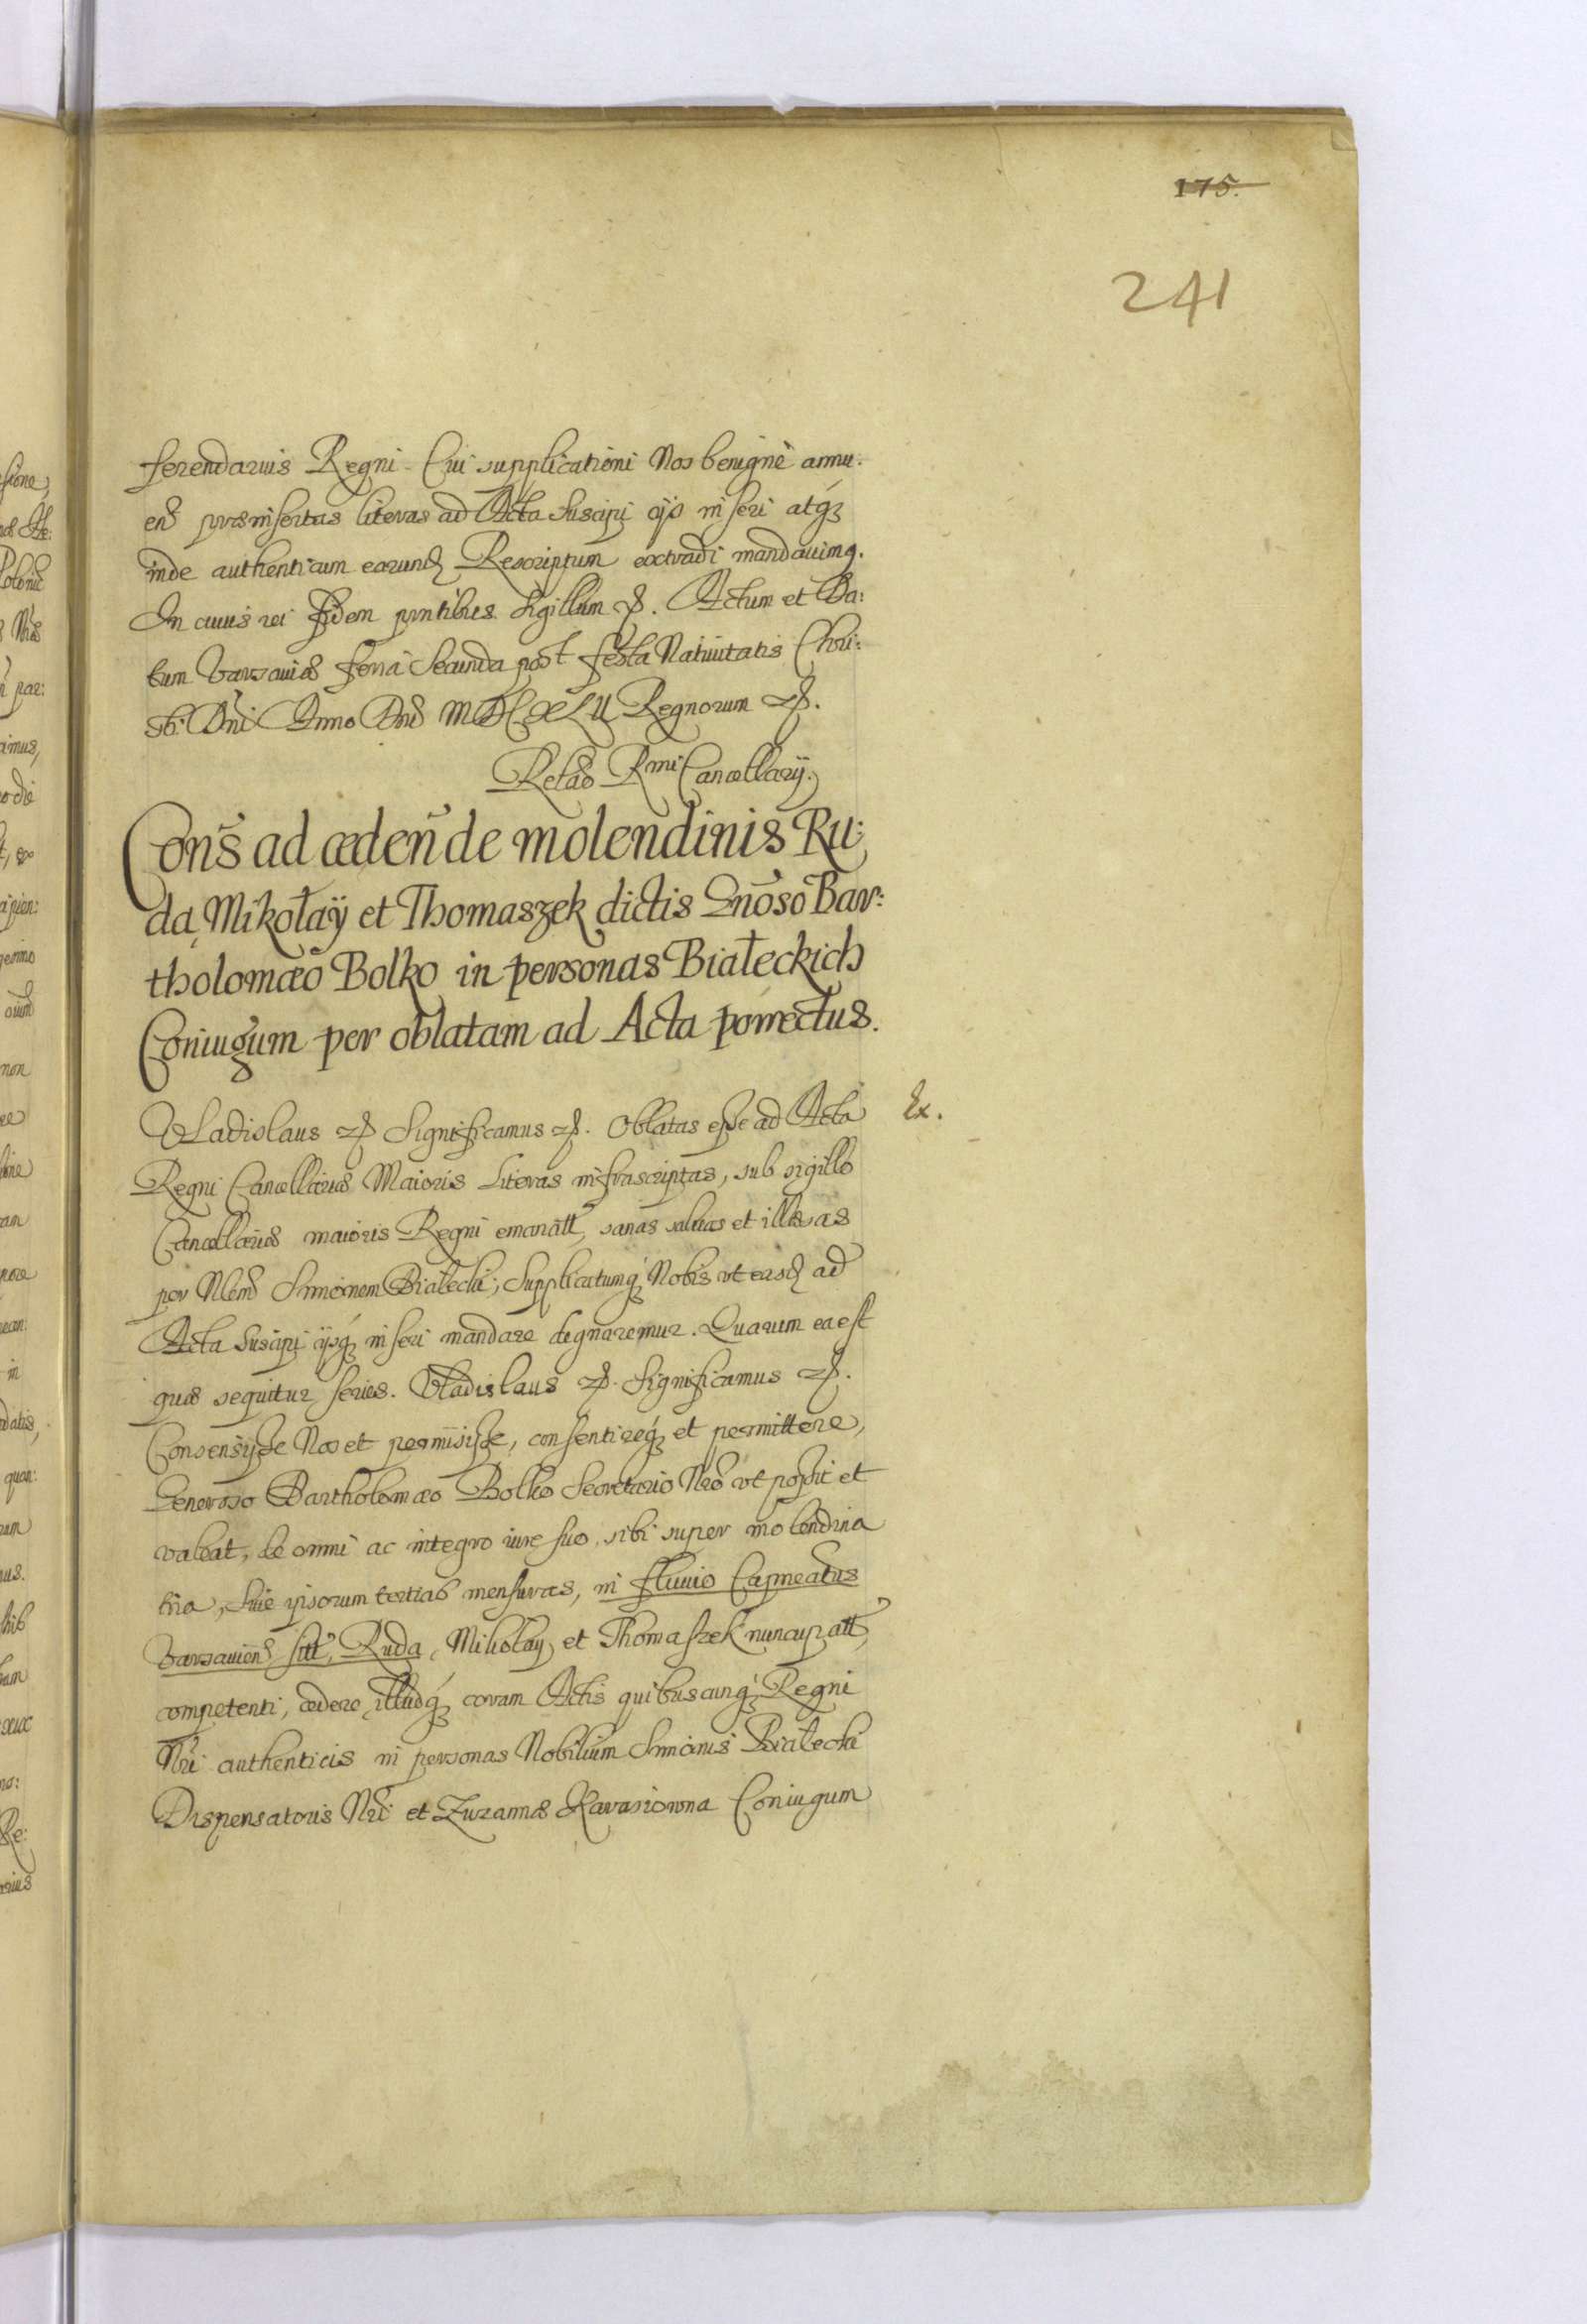 175.
241
ferendarius Regni. Cui supplicationi Nos benignè annu:
en̄ præinsertas literas ad Acta Suscipi ijs inseri atq́
inde authenticum earund Rescriptum extradi mandauimꝰ.
In cuius rei fidem pn̄tibus Sigillum etc. Actum et Da:
tum Varsauiæ feria Secunda post festa Natiuitatis Chri:
sti Dn̄i Anno Dn̄i MDCXLII Regnorum etc.
Relão Rmi Cancellarij.
Cons̄ ad cedeñ de molendinis Ru:
da, Mikołaÿ et Thomaszek dictis Gnōso Bar:
tholomæo Bolko in personas Białeckich
Coniugum per oblatam ad Acta porrectus.
Vladislaus etc Significamus etc. Oblatas esse ad Acta
Ex.
Regni Cancellariæ Maioris Literas infrascriptas, sub sigillo
Cancellariæ maioris Regni emanatt, sanas saluas et illæsas
per Nlem Simonem Białecki; Supplicatumq́ Nobis vt easd ad
Acta Suscipi ijsq́ inseri mandare dignaremur. Quarum ea est
quæ sequitur series. Vladislaus etc. Significamus etc.
Consensisse Nos et permisisse, consentireq́ et permittere,
Generoso Bartholomæo Bolko Secretario Nr̄o vt possit et
valeat, de omni ac integro iure suo, sibi super molendina
tria, siue ipsorum tertias mensuras, in fluuio Capineatus
Varsauien̄ sitt, Ruda, Mikołay et Thomaszek nuncupatt,
competenti, cedere, illudq́ coram Actis quibuscunq́ Regni
Nr̄i authenticis in personas Nobilium Simonis Białecki
Dispensatoris Nr̄i et Zuzannæ Karasiowna Coniugum